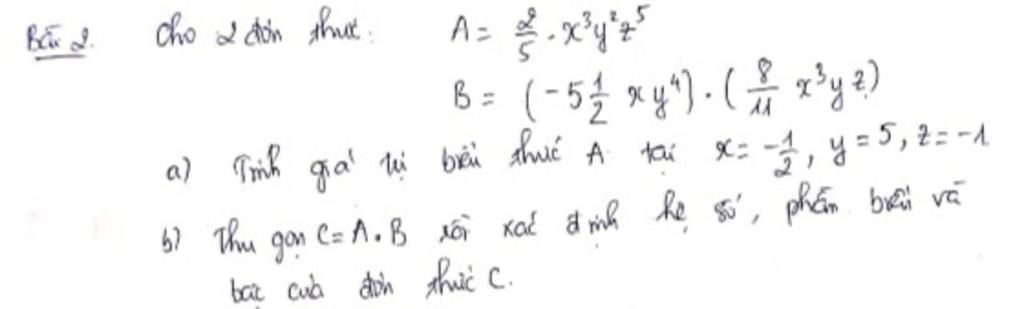 Bài 2. Cho 2 đơn thức: A = 2/5 . x³y²z⁵
B = (-5 1/2 xy⁴) . (8/11 x³yz)
a) Tính giá trị biểu thức A tại x = -1/2, y = 5, z = -1
b) Thu gọn C = A . B rồi xác định hệ số, phần biến và
bậc của đơn thức C.